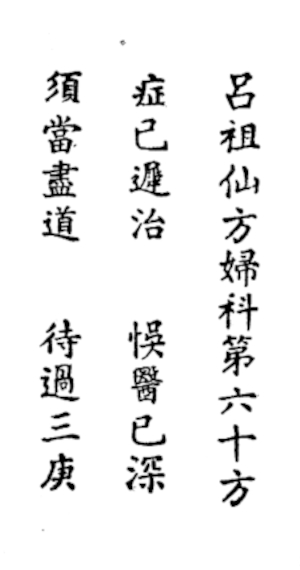 呂祖仙方婦科第六十方
症已遲治　悞醫已深
須當盡道　待過三庚